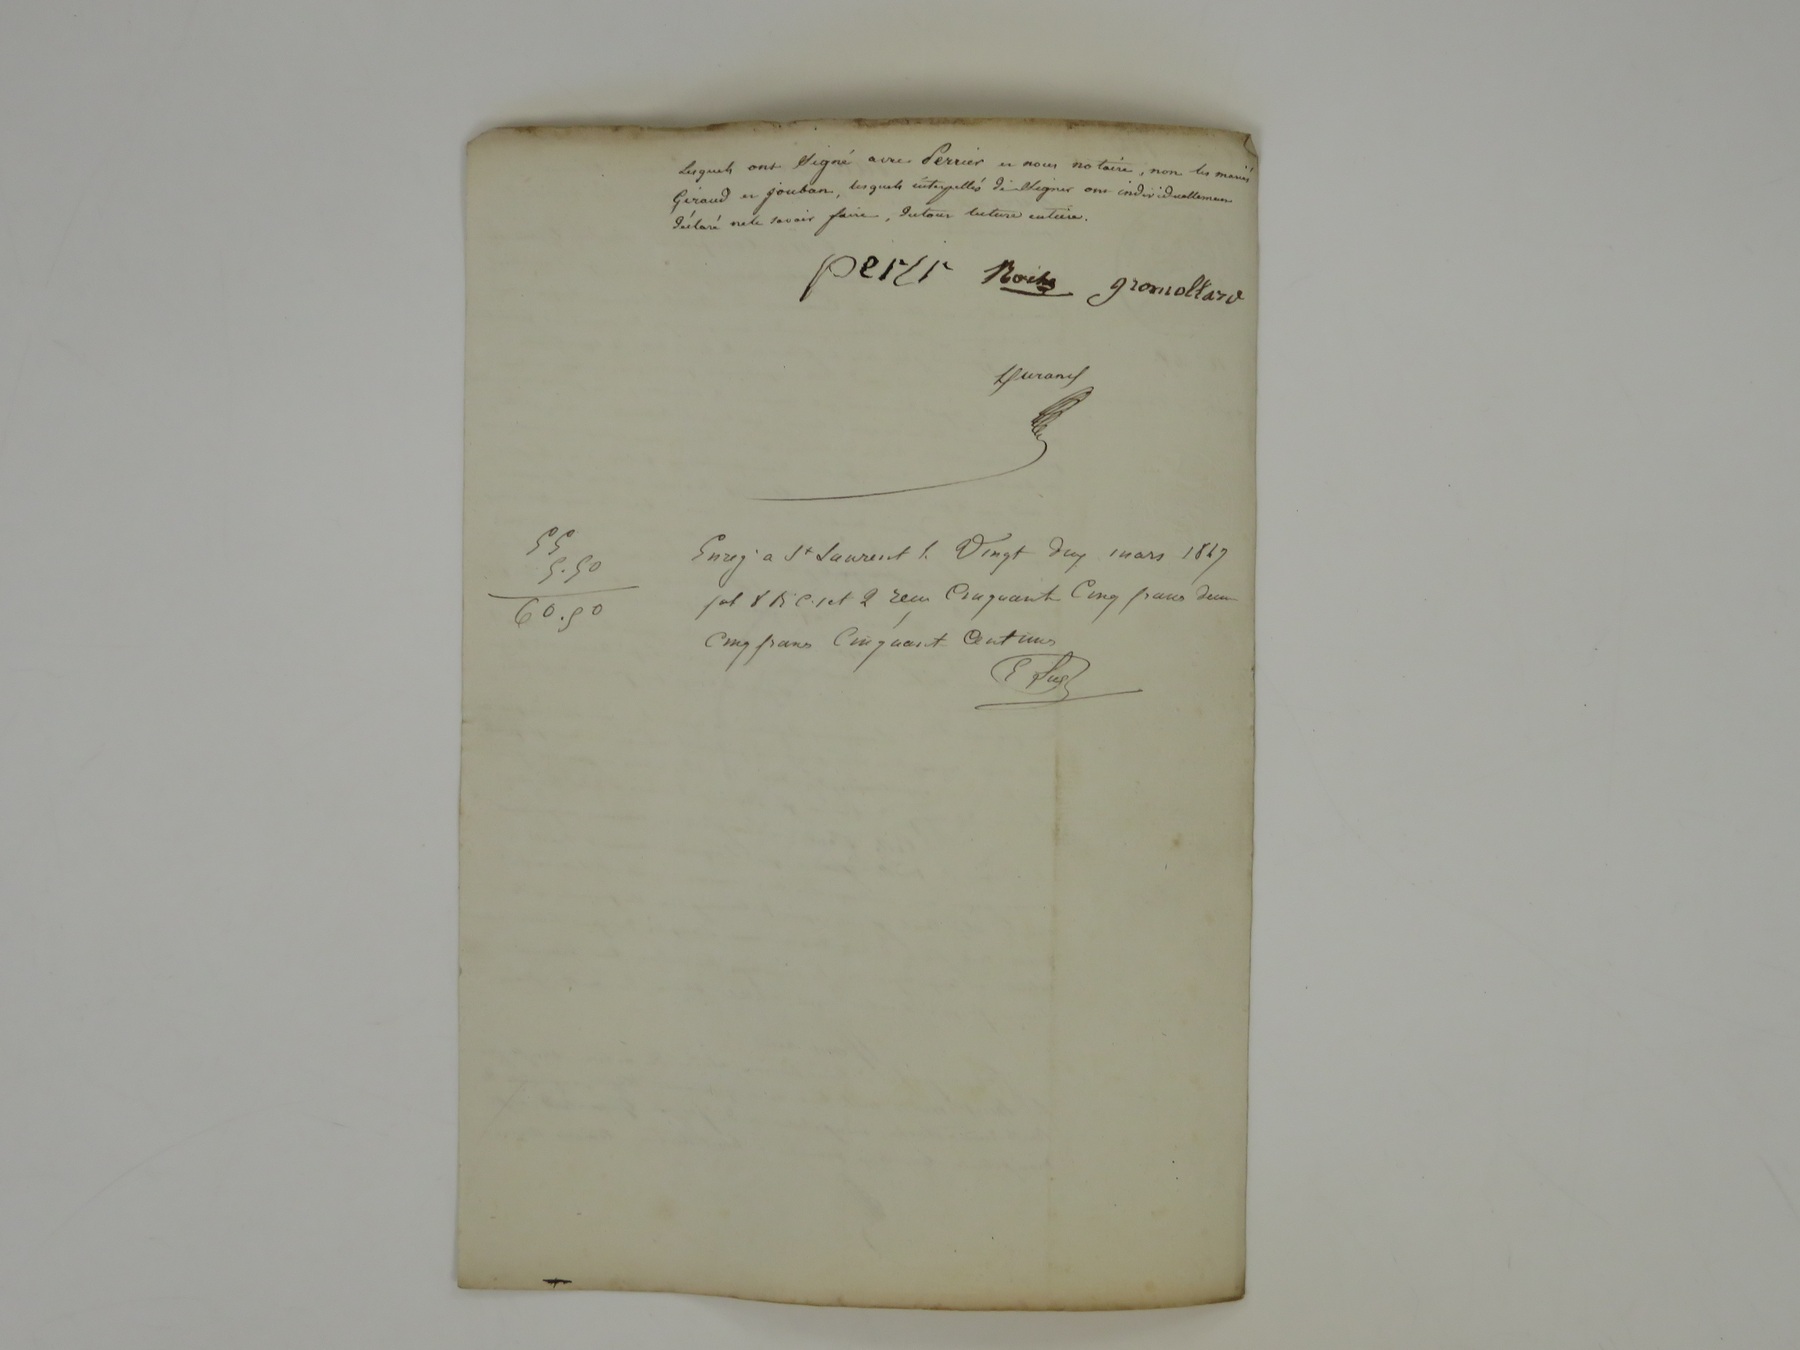 Lesquels ont Signé avec Perrier et nous notaire, non les mariés
Giraud et jouban, lesquels interpellés de Signer ont individuellement
déclaré ne le savoir faire, du tout lecture entière.
perir Roche gromollard
Durand
55
5.50
60.50
Enreg. a St Laurent le Vingt deux mars 1847
fol 8 R c. et 2 recu Cinquante Cinq francs decime
Cinq francs Cinquante Centimes